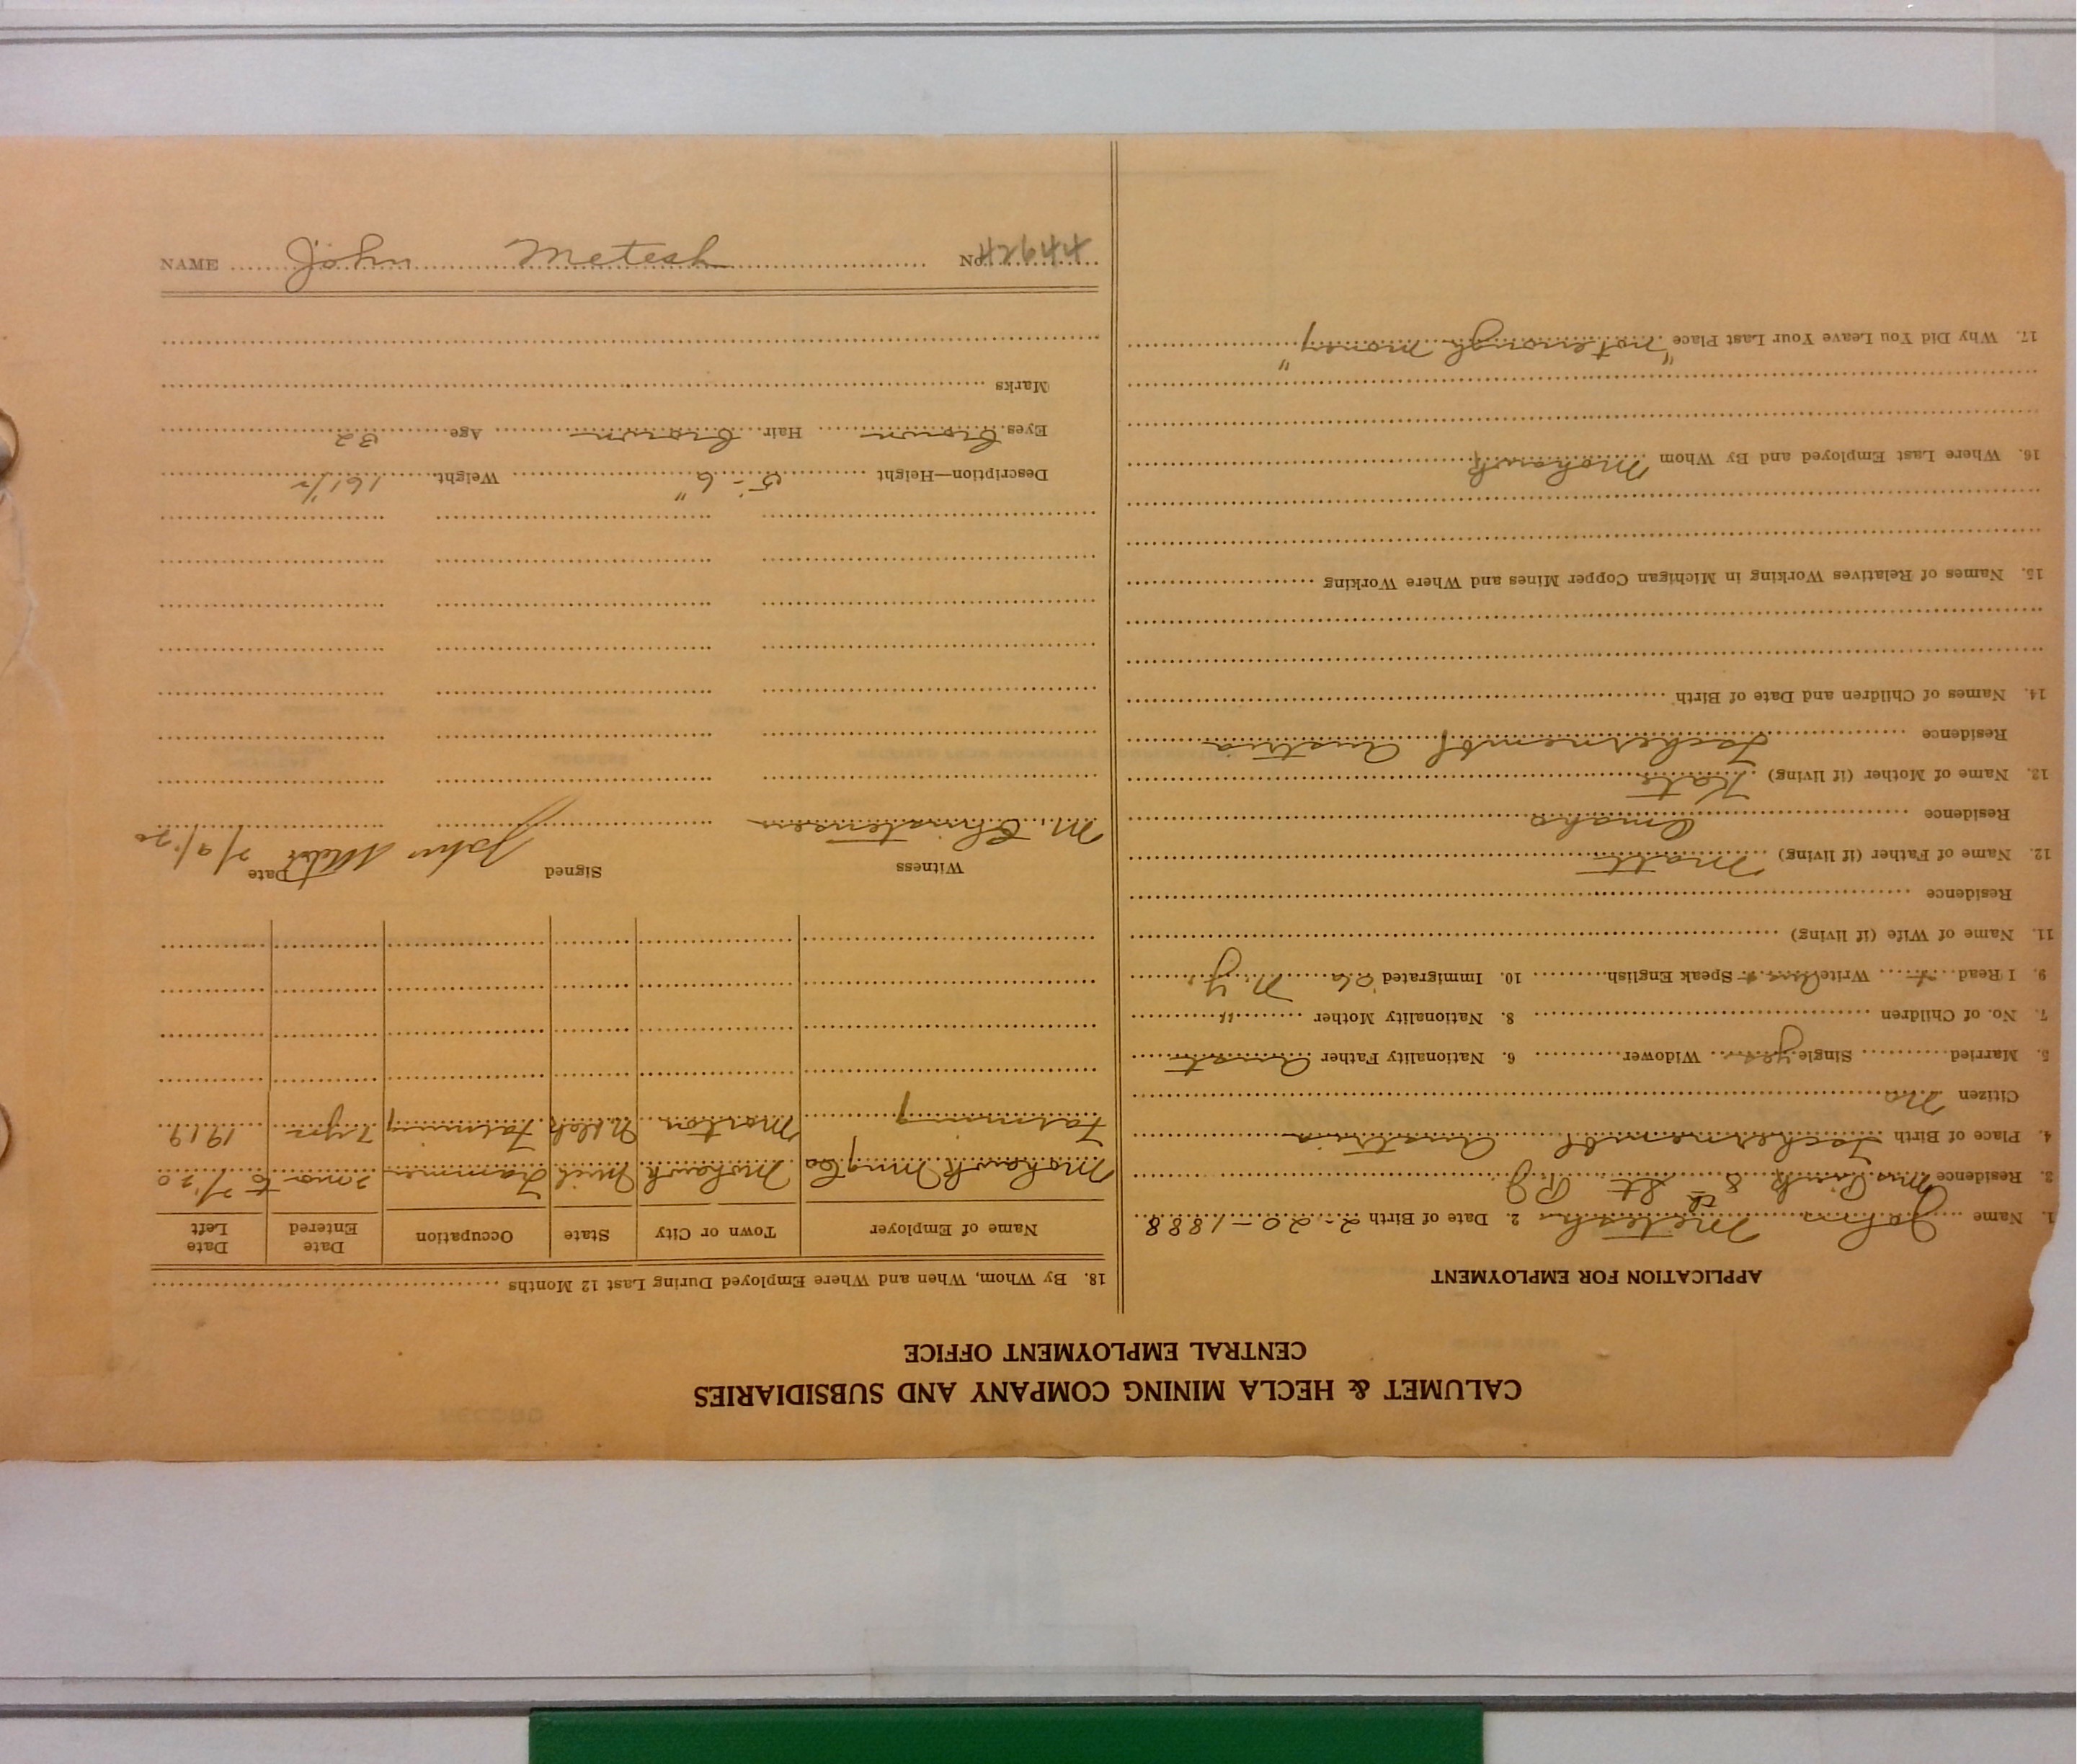 CALUMET & HECLA MINING COMPANY AND SUBSIDIARIES
CENTRAL EMPLOYMENT OFFICE
APPLICATION FOR EMPLOYMENT
1. Name John Metesh 2. Date of Birth 2-20-1888
3. Residence Mrs 8th St
4. Place of Birth Austria
Citizen No
5. Married Single yes Widower 6. Nationality Father Aust
7. No. of Children 8. Nationality Mother "
9. I Read Write Speak English 10. Immigrated N.Y.
11. Name of Wife (if living)
Residence
12. Name of Father (if living) Matt
Residence Omaha
13. Name of Mother (if living) Kate
Residence Austria
14. Names of Children and Date of Birth
15. Names of Relatives Working in Michigan Copper Mines and Where Working
16. Where Last Employed and By Whom Mohawk
17. Why Did You Leave Your Last Place "not enough money"
18. By Whom, When and Where Employed During Last 12 Months
Name of Employer Town or City State Occupation Date Entered Date Left
Mohawk Mng Co Mohawk Mich Trammer 2 mo to 7/20
Farming Morton Farming 7 yrs 1919
Witness Signed Date
M. Christensen John 7/9/20
Description—Height 5'-6" Weight 161½
Eyes brown Hair brown Age 32
Marks
NAME John Metesh No. 42644